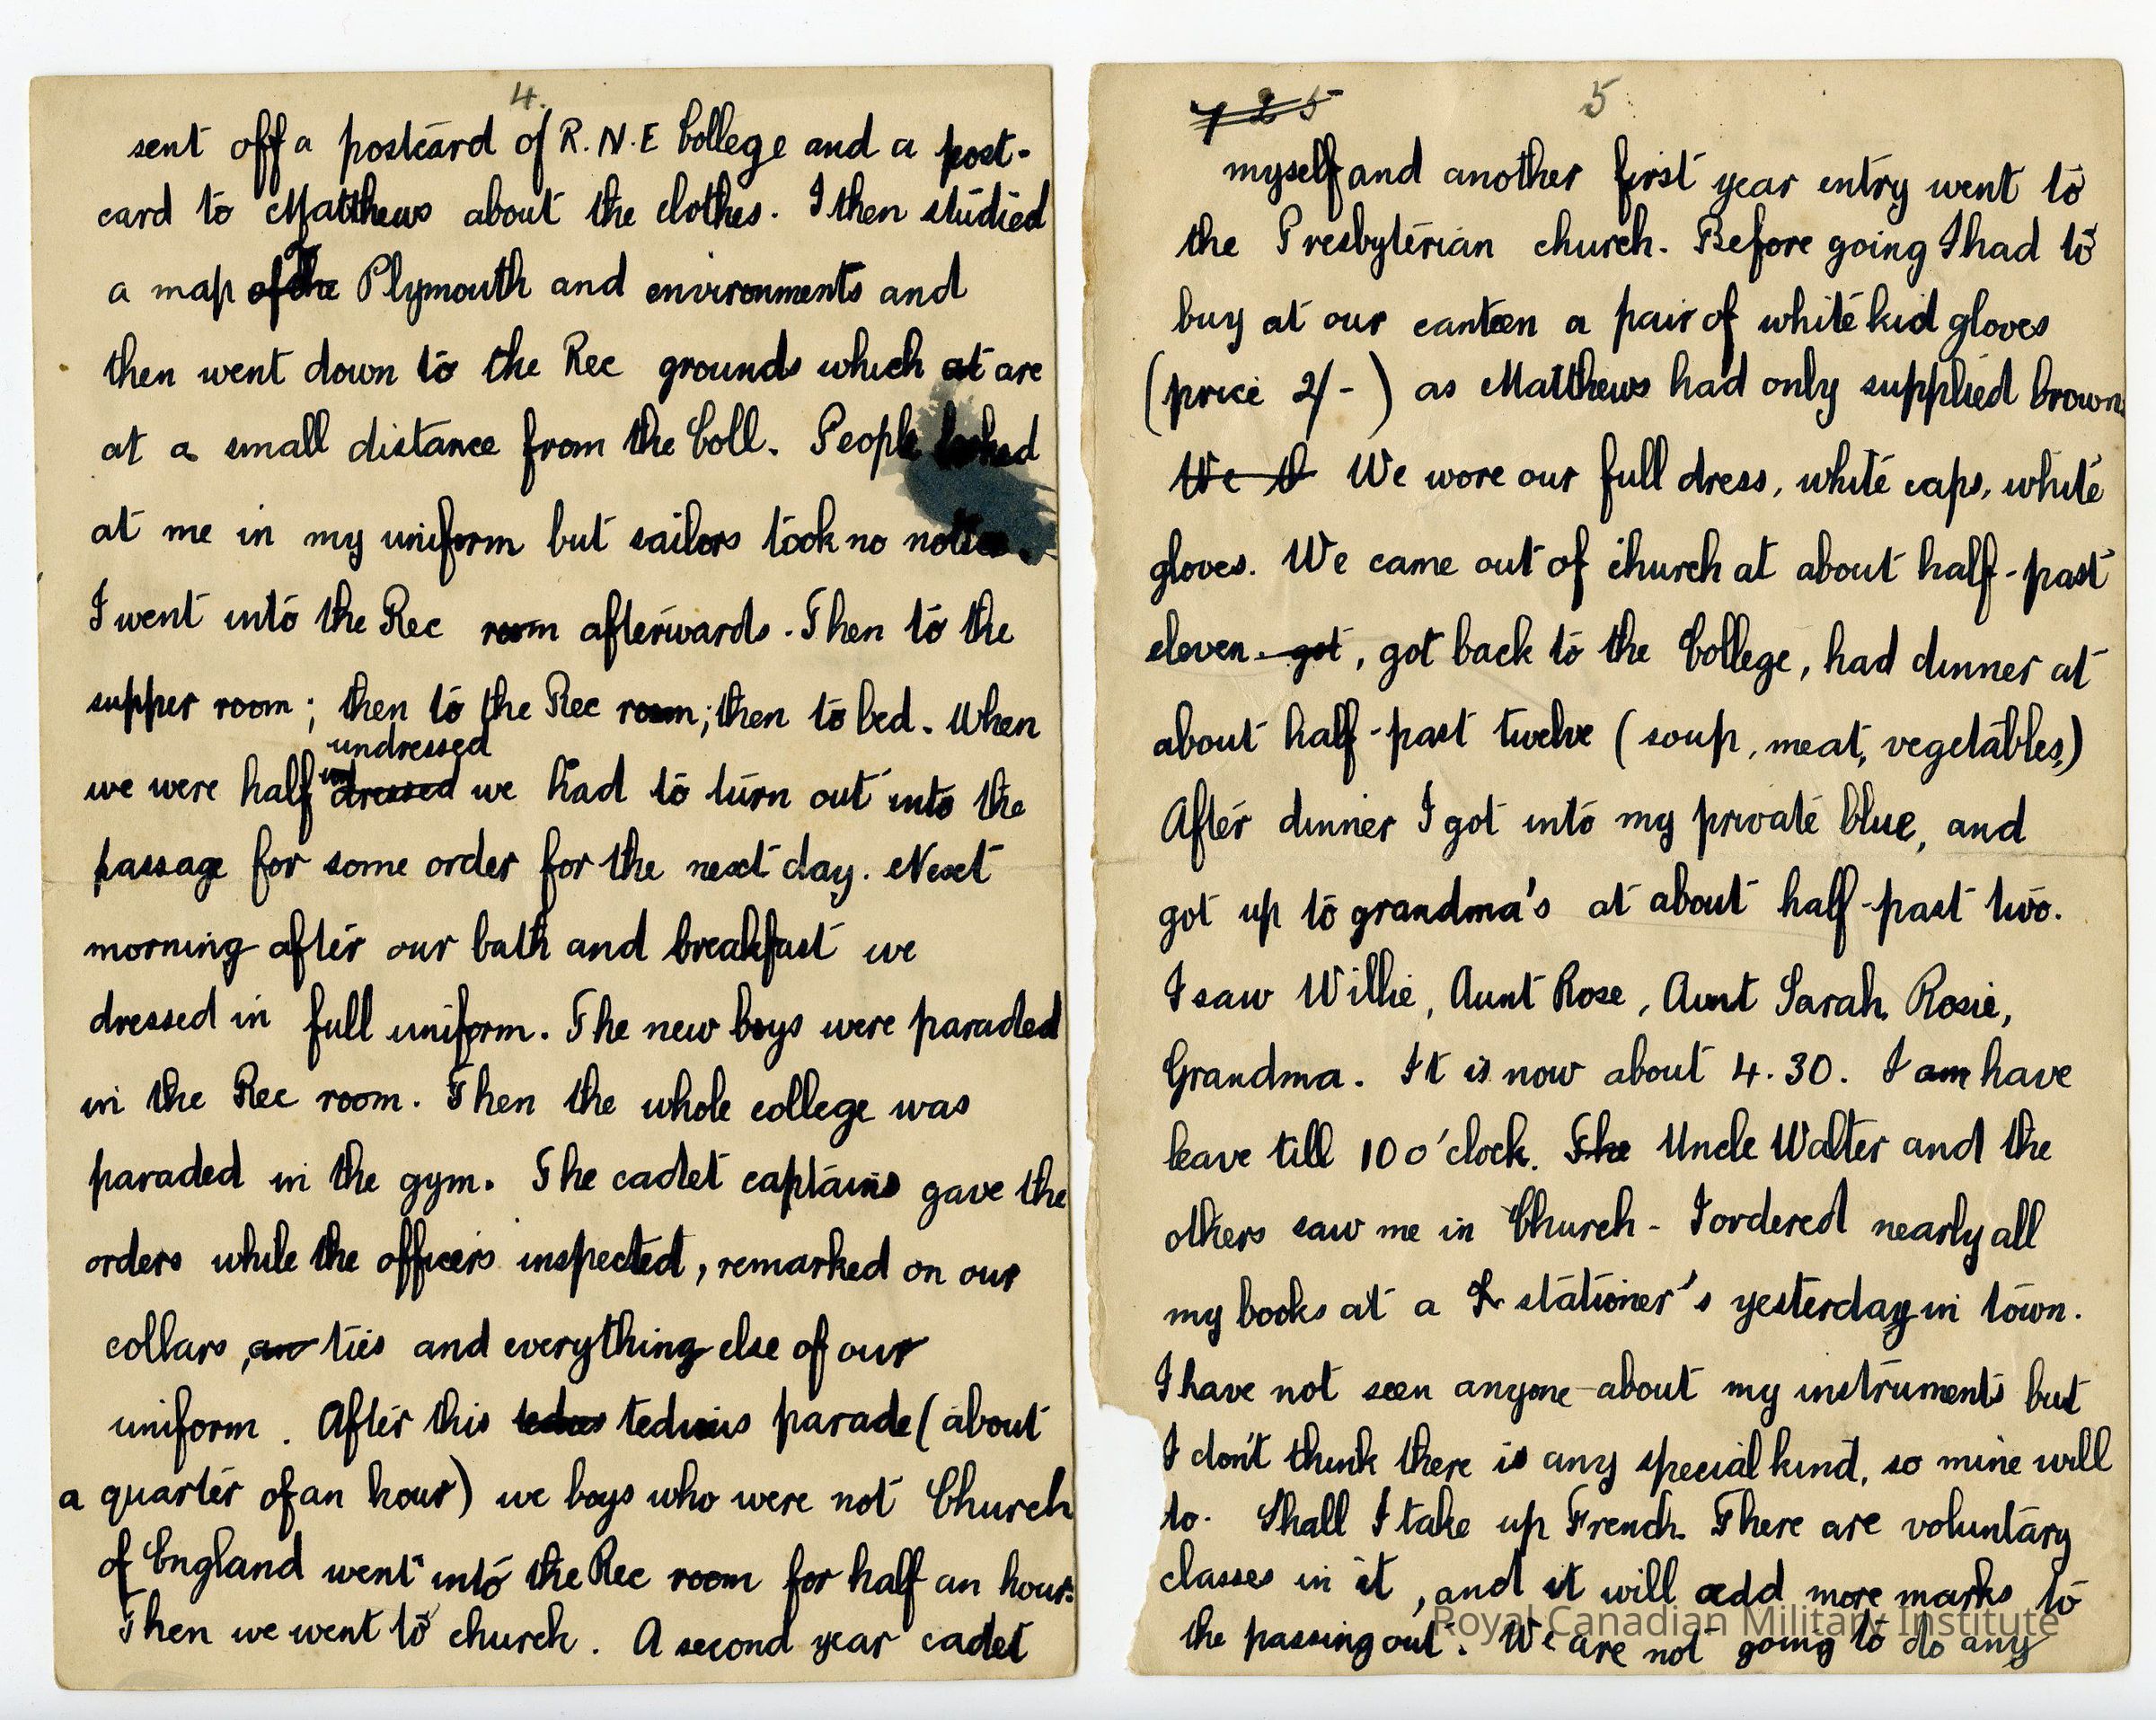 4.
sent off a postcard of R.N.E College and a post-
card to Matthews about the clothes. I then studied
a map of the Plymouth and environments and
then went down to the Rec grounds which at are
at a small distance from the Coll. People looked
at me in my uniform but sailors took no notice.
I went into the Rec room afterwards. Then to the
supper room; then to the Rec room; then to bed. When
undressed
we were half un dressed we had to turn out into the
passage for some order for the next day. Next
morning after our bath and breakfast we
dressed in full uniform. The new boys were paraded
in the Rec room. Then the whole college was
paraded in the gym. The cadet captains gave the
orders while the officers inspected, remarked on our
collars, an ties and everything else of our
uniform. After this tedious parade (about
a quarter of an hour) we boys who were not Church
of England went into the Rec room for half an hour.
Then we went to church. A second year cadet
5
myself and another first year entry went to
the Presbyterian church. Before going I had to
buy at our canteen a pair of white kid gloves
(price 2/-) as Matthews had only supplied brown.
We th We wore our full dress, white caps, white
gloves. We came out of church at about half-past
eleven. got, got back to the College, had dinner at
about half-past twelve (soup, meat, vegetables,)
After dinner I got into my private blue, and
got up to grandma's at about half-past two.
I saw Willie, Aunt Rose, Aunt Sarah, Rosie,
Grandma. It is now about 4.30. I am have
leave till 10 o'clock. The Uncle Walter and the
others saw me in Church - I ordered nearly all
my books at a stationer's yesterday in town.
I have not seen anyone about my instruments but
I don't think there is any special kind, so mine will
do. Shall I take up French. There are voluntary
classes in it, and it will add more marks to
the passing out. We are not going to do any
Royal Canadian Military Institute